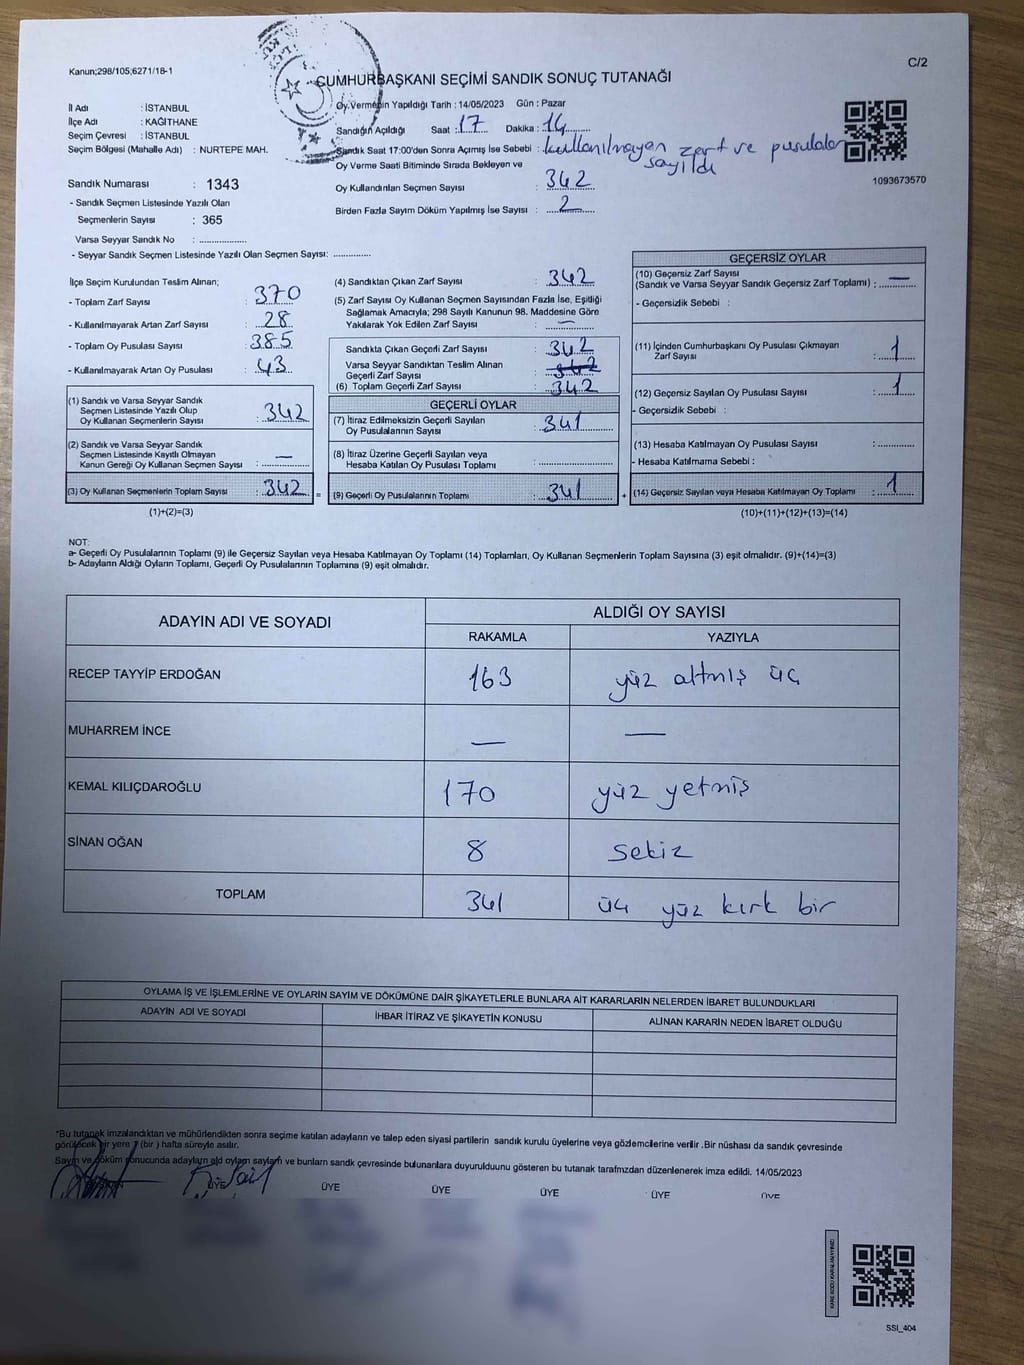 Kanun;298/105;6271/18-1
C/2
CUMHURBAŞKANI SEÇİMİ SANDIK SONUÇ TUTANAĞI
İl Adı : İSTANBUL
İlçe Adı : KAĞITHANE
Seçim Çevresi : İSTANBUL
Seçim Bölgesi (Mahalle Adı) : NURTEPE MAH.
Oy Vermenin Yapıldığı Tarih : 14/05/2023 Gün : Pazar
Sandığın Açıldığı Saat : 17 Dakika : 14
Sandık Saat 17:00'den Sonra Açımış İse Sebebi : kullanılmayan zarf ve pusulalar
sayıldı
Oy Verme Saati Bitiminde Sırada Bekleyen ve
Oy Kullandırılan Seçmen Sayısı : 342
Birden Fazla Sayım Döküm Yapılmış İse Sayısı : 2
1093673570
Sandık Numarası : 1343
- Sandık Seçmen Listesinde Yazılı Olan
Seçmenlerin Sayısı : 365
Varsa Seyyar Sandık No :
- Seyyar Sandık Seçmen Listesinde Yazılı Olan Seçmen Sayısı:
İlçe Seçim Kurulundan Teslim Alınan;
- Toplam Zarf Sayısı : 370
- Kullanılmayarak Artan Zarf Sayısı : 28
- Toplam Oy Pusulası Sayısı : 385
- Kullanılmayarak Artan Oy Pusulası : 43
(1) Sandık ve Varsa Seyyar Sandık
Seçmen Listesinde Yazılı Olup
Oy Kullanan Seçmenlerin Sayısı : 342
(2) Sandık ve Varsa Seyyar Sandık
Seçmen Listesinde Kayıtlı Olmayan
Kanun Gereği Oy Kullanan Seçmen Sayısı : —
(3) Oy Kullanan Seçmenlerin Toplam Sayısı : 342 =
(1)+(2)=(3)
(4) Sandıktan Çıkan Zarf Sayısı : 342
(5) Zarf Sayısı Oy Kullanan Seçmen Sayısından Fazla İse, Eşitliği
Sağlamak Amacıyla; 298 Sayılı Kanunun 98. Maddesine Göre
Yakılarak Yok Edilen Zarf Sayısı : —
Sandıkta Çıkan Geçerli Zarf Sayısı : 342
Varsa Seyyar Sandıktan Teslim Alınan
Geçerli Zarf Sayısı : 342
(6) Toplam Geçerli Zarf Sayısı : 342
GEÇERLİ OYLAR
(7) İtiraz Edilmeksizin Geçerli Sayılan
Oy Pusulalarının Sayısı : 341
(8) İtiraz Üzerine Geçerli Sayılan veya
Hesaba Katılan Oy Pusulası Toplamı :
(9) Geçerli Oy Pusulalarının Toplamı : 341 +
GEÇERSİZ OYLAR
(10) Geçersiz Zarf Sayısı
(Sandık ve Varsa Seyyar Sandık Geçersiz Zarf Toplamı) : —
- Geçersizlik Sebebi :
(11) İçinden Cumhurbaşkanı Oy Pusulası Çıkmayan
Zarf Sayısı : 1
(12) Geçersiz Sayılan Oy Pusulası Sayısı : 1
- Geçersizlik Sebebi :
(13) Hesaba Katılmayan Oy Pusulası Sayısı :
- Hesaba Katılmama Sebebi :
(14) Geçersiz Sayılan veya Hesaba Katılmayan Oy Toplamı : 1
(10)+(11)+(12)+(13)=(14)
NOT:
a- Geçerli Oy Pusulalarının Toplamı (9) ile Geçersiz Sayılan veya Hesaba Katılmayan Oy Toplamı (14) Toplamları, Oy Kullanan Seçmenlerin Toplam Sayısına (3) eşit olmalıdır. (9)+(14)=(3)
b- Adayların Aldığı Oyların Toplamı, Geçerli Oy Pusulalarının Toplamına (9) eşit olmalıdır.
ADAYIN ADI VE SOYADI
ALDIĞI OY SAYISI
RAKAMLA YAZIYLA
RECEP TAYYİP ERDOĞAN 163 yüz altmış üç
MUHARREM İNCE — —
KEMAL KILIÇDAROĞLU 170 yüz yetmiş
SİNAN OĞAN 8 sekiz
TOPLAM 341 üç yüz kırk bir
OYLAMA İŞ VE İŞLEMLERİNE VE OYLARIN SAYIM VE DÖKÜMÜNE DAİR ŞİKAYETLERLE BUNLARA AİT KARARLARIN NELERDEN İBARET BULUNDUKLARI
ADAYIN ADI VE SOYADI İHBAR İTİRAZ VE ŞİKAYETİN KONUSU ALINAN KARARIN NEDEN İBARET OLDUĞU
*Bu tutanak imzalandıktan ve mühürlendikten sonra seçime katılan adayların ve talep eden siyasi partilerin sandık kurulu üyelerine veya gözlemcilerine verilir .Bir nüshası da sandık çevresinde
görülecek bir yere 7 (bir ) hafta süreyle asılır.
Sayım ve döküm sonucunda adayların ald oyların sayların ve bunların sandık çevresinde bulunanlara duyurulduunu gösteren bu tutanak tarafmzdan düzenlenerek imza edildi. 14/05/2023
ÜYE ÜYE ÜYE ÜYE ÜYE ÜYE
SSI_404